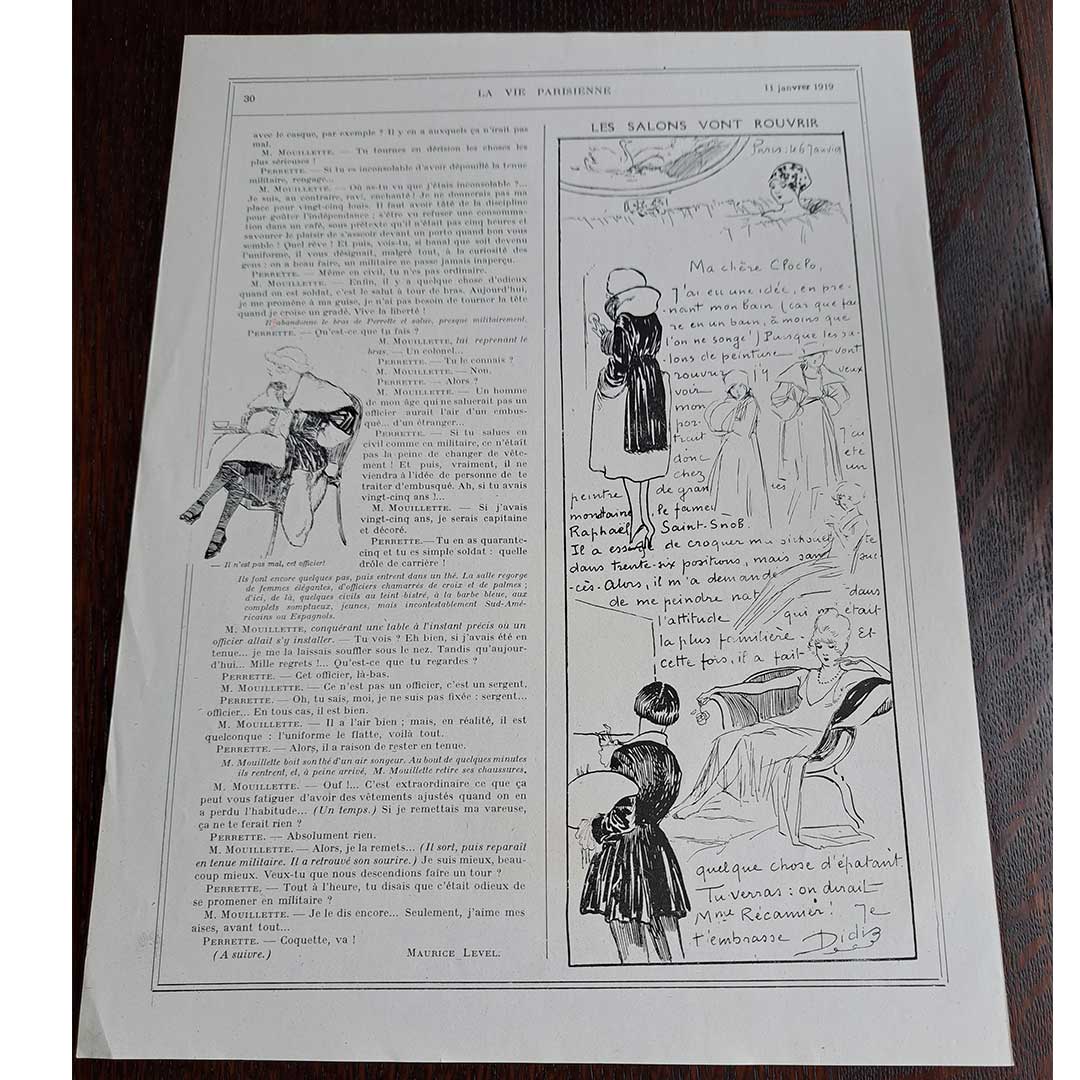 30
LA VIE PARISIENNE
11 janvier 1919
avec le casque, par exemple ? Il y en a auxquels ça n'irait pas
mal.
M. MOUILLETTE. — Tu tournes en dérision les choses les
plus sérieuses !
PERRETTE. — Si tu es inconsolable d'avoir dépouillé la tenue
militaire, rengage...
M. MOUILLETTE. — Où as-tu vu que j'étais inconsolable ?...
Je suis, au contraire, ravi, enchanté! Je ne donnerais pas ma
place pour vingt-cinq louis. Il faut avoir tâté de la discipline
pour goûter l'indépendance ; s'être vu refuser une consomma-
tion dans un café, sous prétexte qu'il n'était pas cinq heures et
savourer le plaisir de s'asseoir devant un porto quand bon vous
semble ! Quel rêve ! Et puis, vois-tu, si banal que soit devenu
l'uniforme, il vous désignait, malgré tout, à la curiosité des
gens : on a beau faire, un militaire ne passe jamais inaperçu.
PERRETTE. — Même en civil, tu n'es pas ordinaire.
M. MOUILLETTE. — Enfin, il y a quelque chose d'odieux
quand on est soldat, c'est le salut à tour de bras. Aujourd'hui,
je me promène à ma guise, je n'ai pas besoin de tourner la tête
quand je croise un gradé. Vive la liberté !
Il abandonne le bras de Perrette et salue, presque militairement.
PERRETTE. — Qu'est-ce que tu fais ?
M. MOUILLETTE, lui reprenant le
bras. — Un colonel...
PERRETTE. — Tu le connais ?
M. MOUILLETTE. — Non.
PERRETTE. — Alors ?
M. MOUILLETTE. — Un homme
de mon âge qui ne saluerait pas un
officier aurait l'air d'un embus-
qué... d'un étranger...
PERRETTE. — Si tu salues en
civil comme en militaire, ce n'était
pas la peine de changer de vête-
ment ! Et puis, vraiment, il ne
viendra à l'idée de personne de te
traiter d'embusqué. Ah, si tu avais
vingt-cinq ans !...
M. MOUILLETTE. — Si j'avais
vingt-cinq ans, je serais capitaine
et décoré.
PERRETTE. — Tu en as quarante-
cinq et tu es simple soldat : quelle
drôle de carrière !
— Il n'est pas mal, cet officier!
Ils font encore quelques pas, puis entrent dans un thé. La salle regorge
de femmes élégantes, d'officiers chamarrés de croix et de palmes ;
d'ici, de là, quelques civils au teint bistré, à la barbe bleue, aux
complets somptueux, jeunes, mais incontestablement Sud-Amé-
ricains ou Espagnols.
M. MOUILLETTE, conquérant une table à l'instant précis où un
officier allait s'y installer. — Tu vois ? Eh bien, si j'avais été en
tenue... je me la laissais souffler sous le nez. Tandis qu'aujour-
d'hui... Mille regrets !... Qu'est-ce que tu regardes ?
PERRETTE. — Cet officier, là-bas.
M. MOUILLETTE. — Ce n'est pas un officier, c'est un sergent.
PERRETTE. — Oh, tu sais, moi, je ne suis pas fixée : sergent...
officier... En tous cas, il est bien.
M. MOUILLETTE. — Il a l'air bien ; mais, en réalité, il est
quelconque : l'uniforme le flatte, voilà tout.
PERRETTE. — Alors, il a raison de rester en tenue.
M. Mouillette boit son thé d'un air songeur. Au bout de quelques minutes
ils rentrent, et, à peine arrivé, M. Mouillette retire ses chaussures,
M. MOUILLETTE. — Ouf !... C'est extraordinaire ce que ça
peut vous fatiguer d'avoir des vêtements ajustés quand on en
a perdu l'habitude... (Un temps.) Si je remettais ma vareuse,
ça ne te ferait rien ?
PERRETTE. — Absolument rien.
M. MOUILLETTE. — Alors, je la remets... (Il sort, puis reparaît
en tenue militaire. Il a retrouvé son sourire.) Je suis mieux, beau-
coup mieux. Veux-tu que nous descendions faire un tour ?
PERRETTE. — Tout à l'heure, tu disais que c'était odieux de
se promener en militaire ?
M. MOUILLETTE. — Je le dis encore... Seulement, j'aime mes
aises, avant tout...
PERRETTE. — Coquette, va !
(A suivre.)
MAURICE LEVEL.
LES SALONS VONT ROUVRIR
Paris, le 6 Janvier
Ma chère Cloclo,
J'ai eu une idée, en pre-
nant mon bain (car que fai
re en un bain, à moins que
l'on ne songe!) Puisque les sa-
lons de peinture vont
rouvrir j'y veux
voir
mon
por-
trait J'ai
donc été
chez un
peintre de gran
mondaine, le fameu
Raphaël Saint-Snob.
Il a essayé de croquer ma silhouette
dans trente-six positions, mais sans suc-
-cès. Alors, il m'a demandé
de me peindre dans
l'attitude qui m'était
la plus familière. Et
cette fois, il a fait
quelque chose d'épatant.
Tu verras : on dirait
Mme Récamier! Je
t'embrasse Didiz